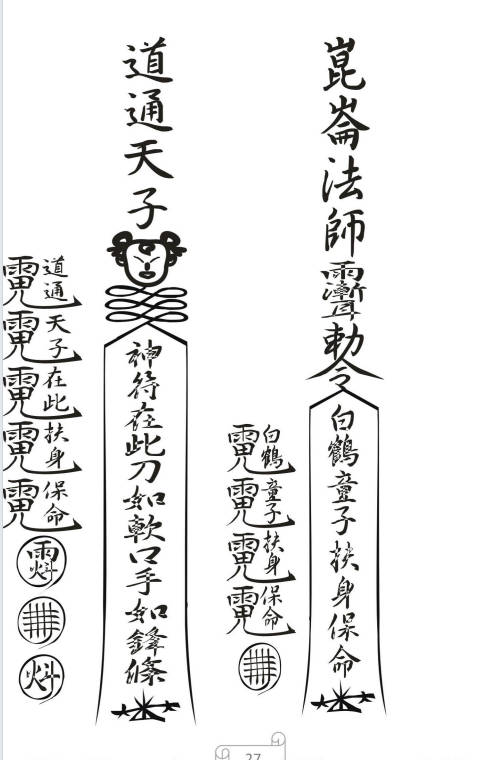 崑崙法師
敕令
白鶴童子扶身保命
白鶴
童子
扶身
保命
道通天子
神符在此刀如軟口手如鋒條
道通
天子
在此
扶身
保命
27